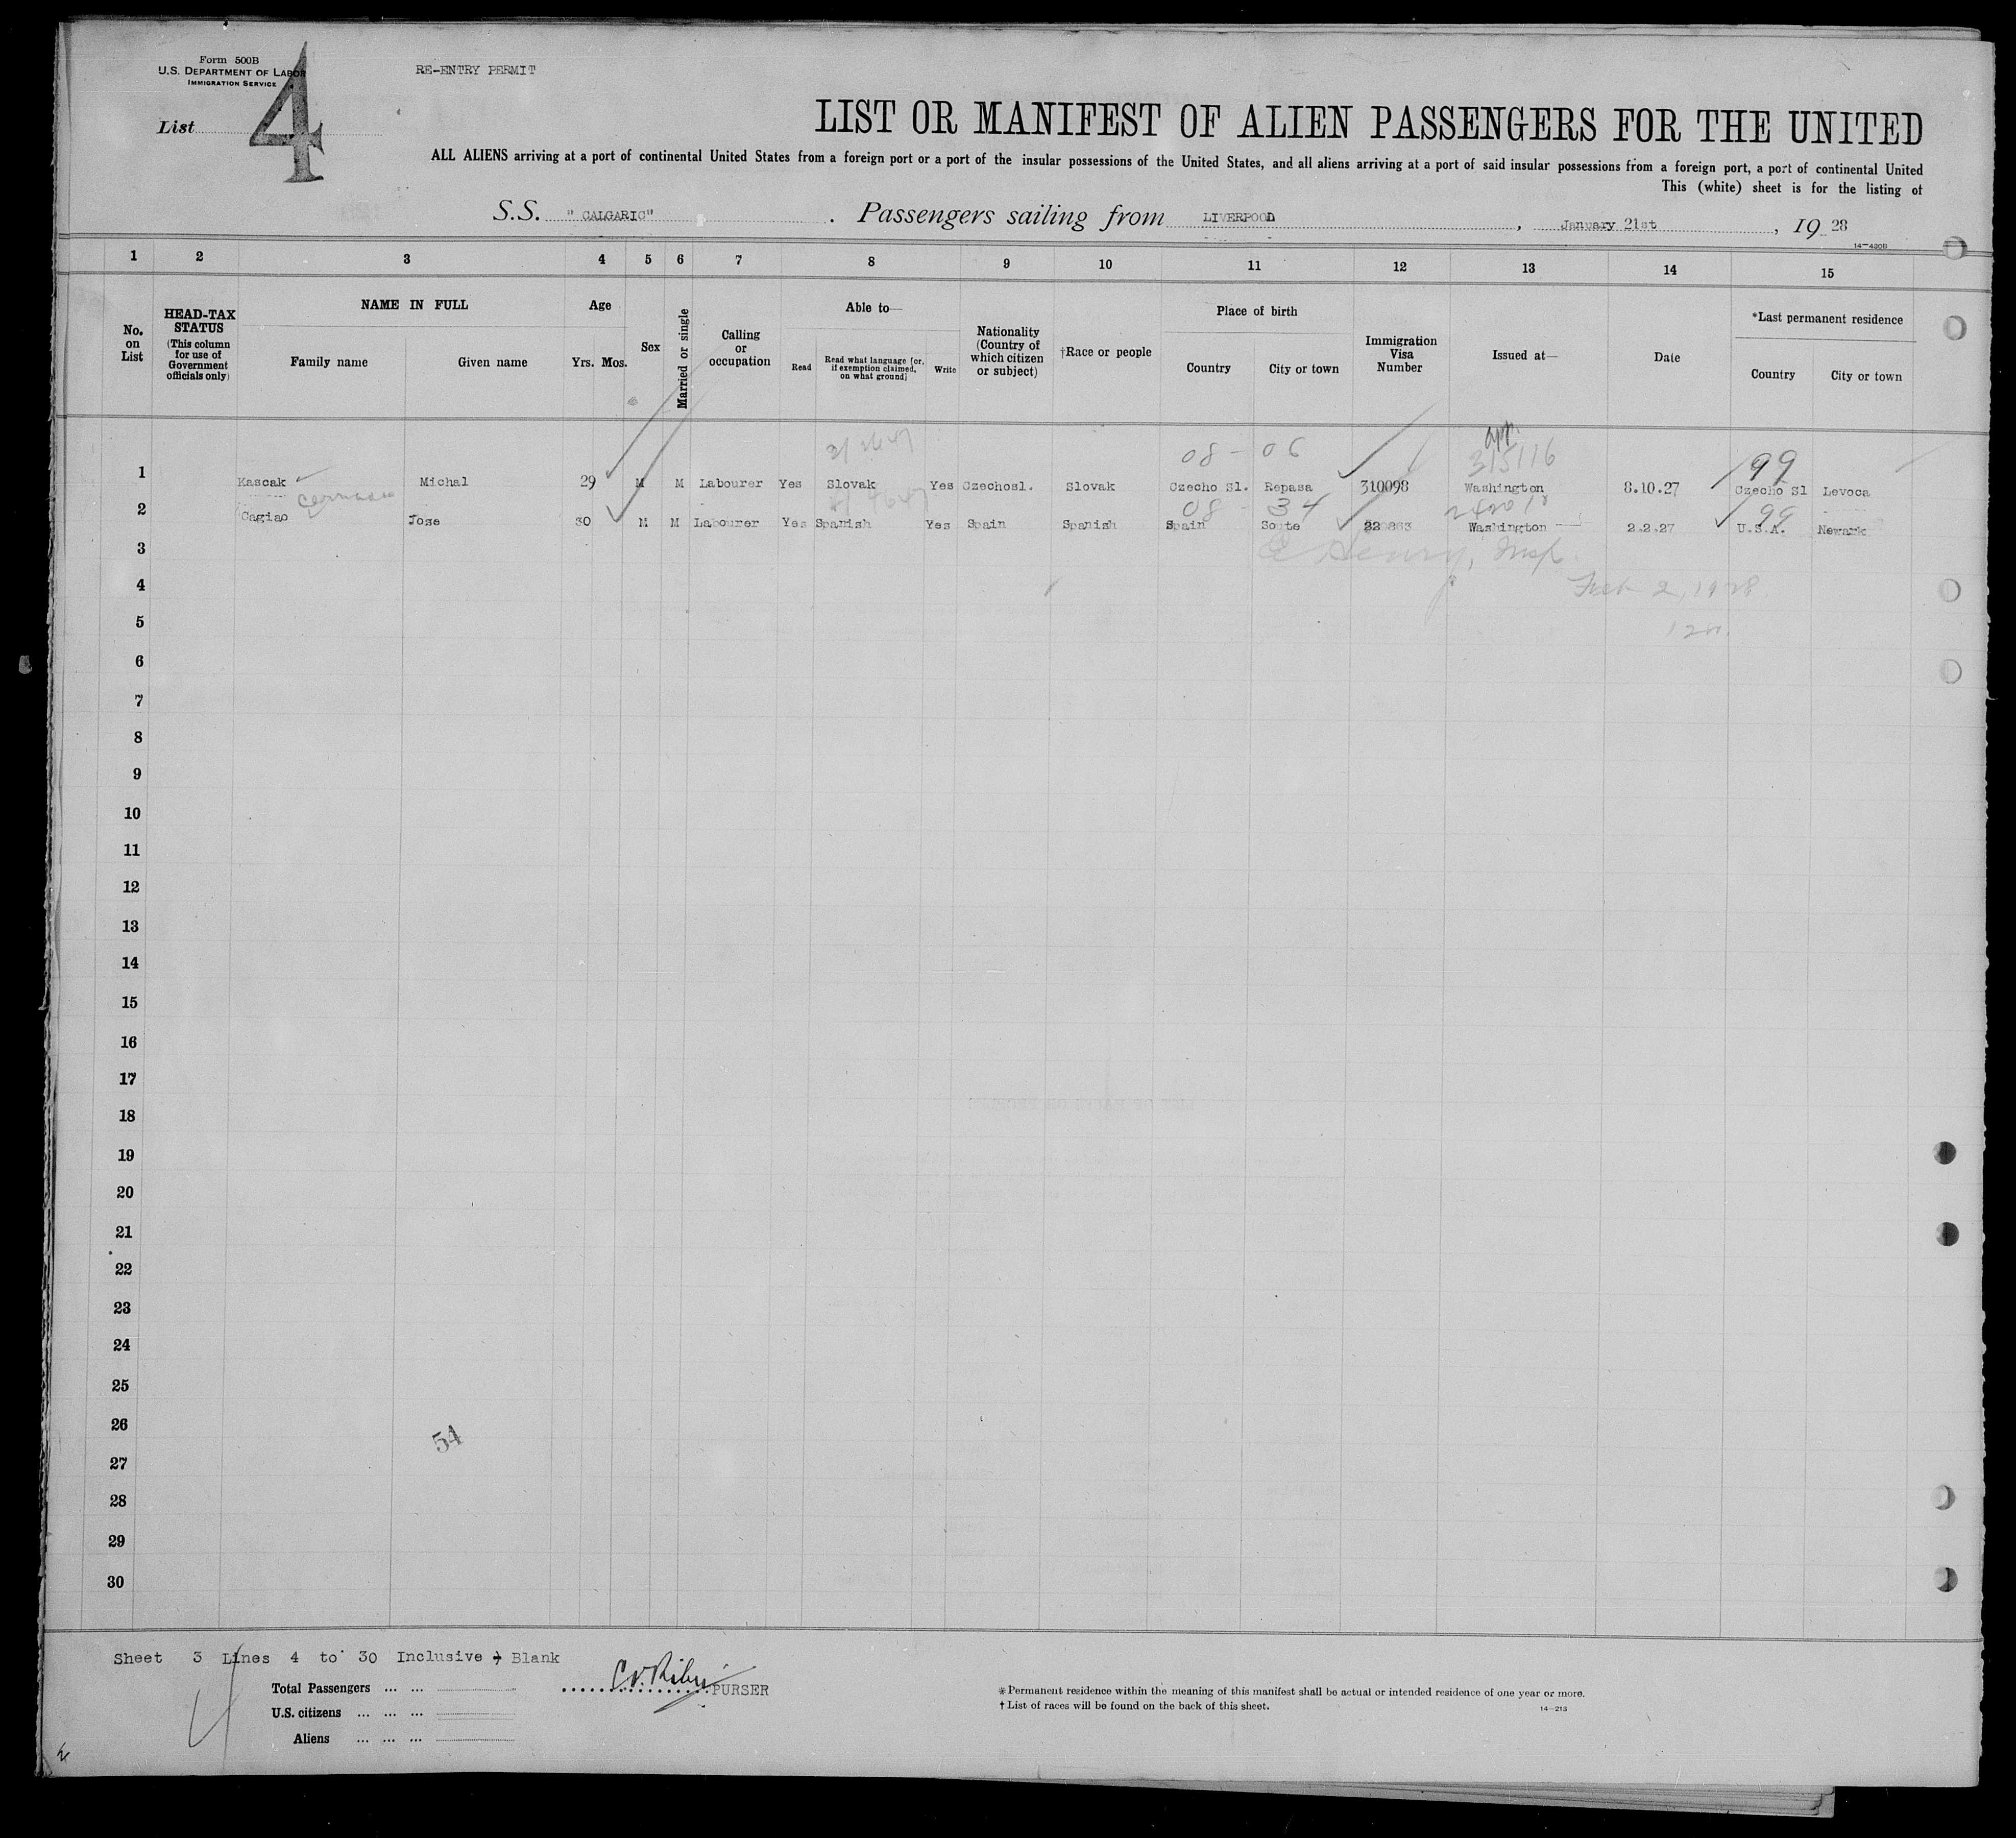 Form 500B
U.S. DEPARTMENT OF LABOR
IMMIGRATION SERVICE
RE-ENTRY PERMIT
List 4
LIST OR MANIFEST OF ALIEN PASSENGERS FOR THE UNITED
ALL ALIENS arriving at a port of continental United States from a foreign port or a port of the insular possessions of the United States, and all aliens arriving at a port of said insular possessions from a foreign port, a port of continental United
This (white) sheet is for the listing of
S.S. "CALGARIC". Passengers sailing from LIVERPOOL, January 21st, 19 28
14-4306
1 2 3 4 5 6 7 8 9 10 11 12 13 14 15
No. on List
HEAD-TAX STATUS (This column for use of Government officials only)
NAME IN FULL
Family name Given name
Age
Yrs. Mos.
Sex
Married or single
Calling or occupation
Able to—
Read
Read what language [or, if exemption claimed, on what ground]
Write
Nationality (Country of which citizen or subject)
†Race or people
Place of birth
Country City or town
Immigration Visa Number
Issued at—
Date
*Last permanent residence
Country City or town
08 - 06 315116 99
1 Kascak Michal 29 M M Labourer Yes Slovak Yes Czechosl. Slovak Czecho Sl. Repasa 310098 Washington 8.10.27 Czecho Sl Levoca
08 - 34 99
2 Cagiao Jose 30 M M Labourer Yes Spanish Yes Spain Spanish Spain Soute Washington 2.2.27 U.S.A. Newark
Henry, Insp.
3
Feb 2, 1928
4
5
6
7
8
9
10
11
12
13
14
15
16
17
18
19
20
21
22
23
24
25
26
54
27
28
29
30
Sheet 3 Lines 4 to 30 Inclusive Blank
Total Passengers ... ...
PURSER
U.S. citizens ... ... ...
Aliens ... ... ...
* Permanent residence within the meaning of this manifest shall be actual or intended residence of one year or more.
† List of races will be found on the back of this sheet.
14-213